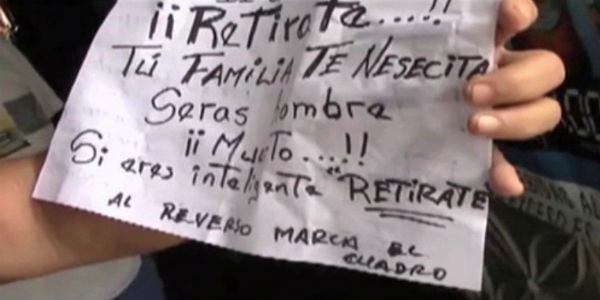 ¡¡Retirate.....!!
TÚ FAMILIA TE NESECITA
Seras hombre
¡¡Mueto....!!
Si eres inteligente "RETIRATE
AL REVERSO MARCA EL
CUADRO